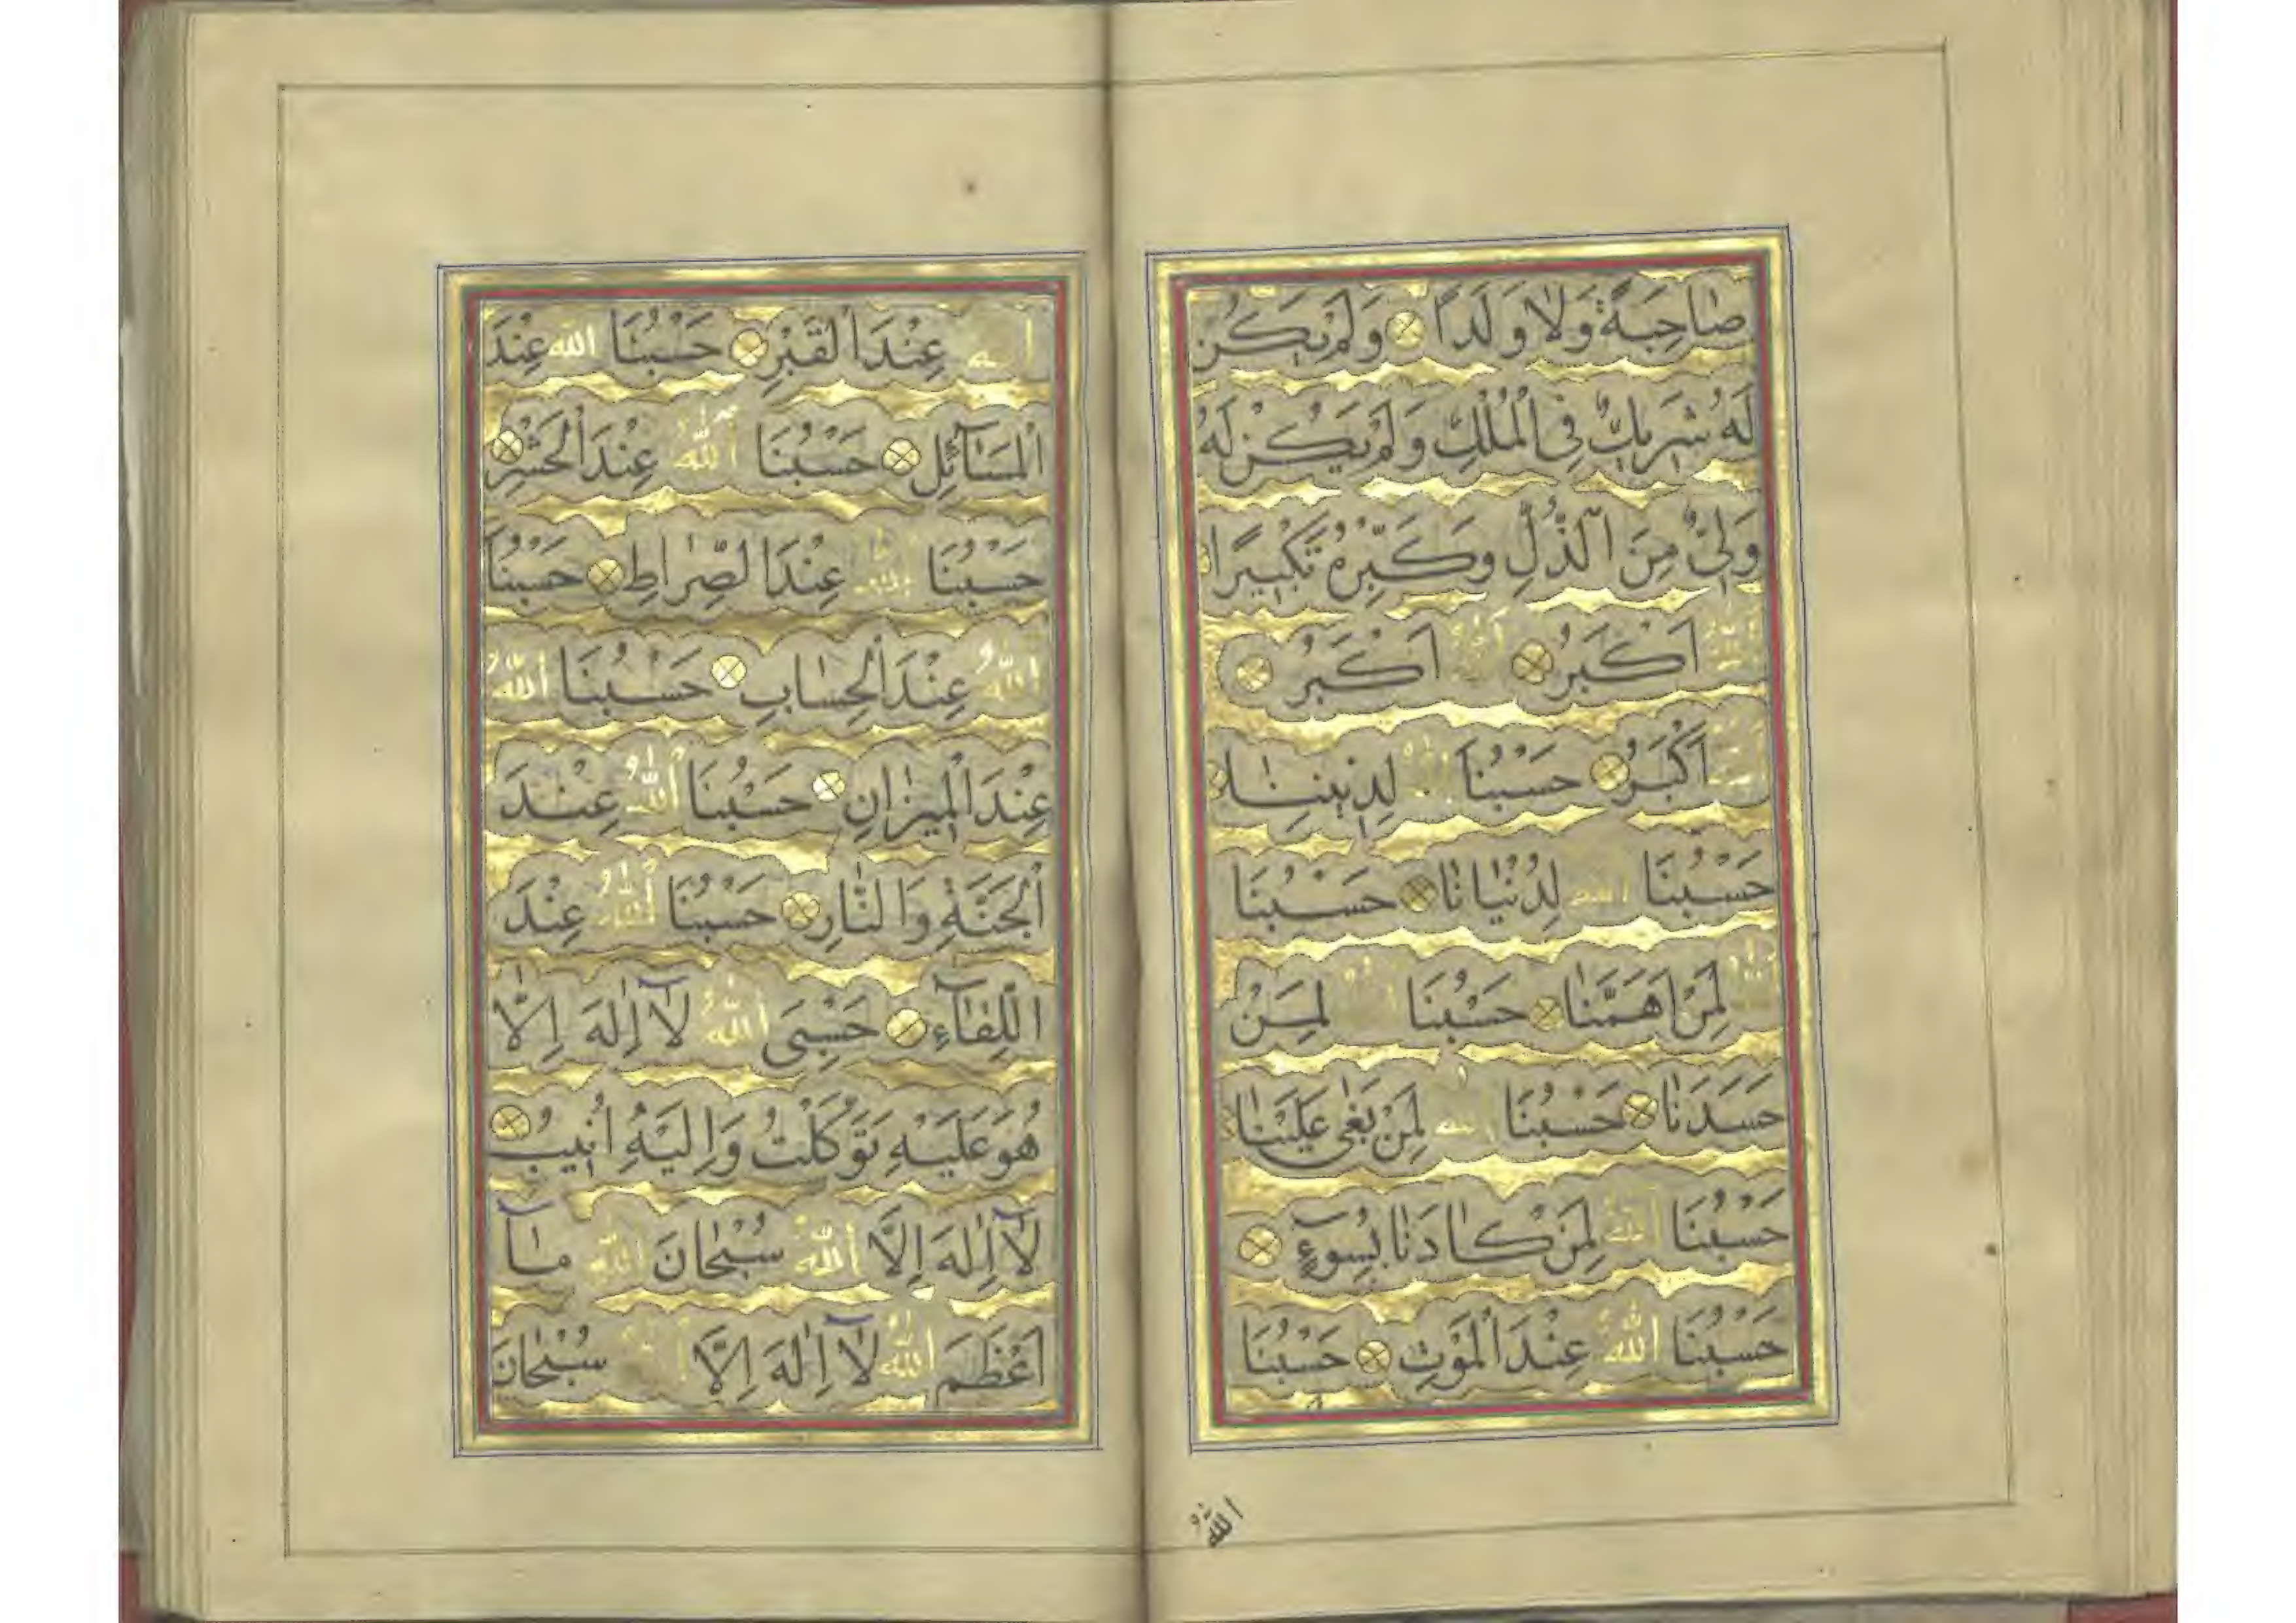 صَاحِبَةً وَلَا وَلَدًا وَلَمْ يَكُنْ
لَهُ شَرِيكٌ فِي الْمُلْكِ وَلَمْ يَكُنْ لَهُ
وَلِيٌّ مِنَ الذُّلِّ وَكَبِّرْهُ تَكْبِيرًا
اَللّٰهُ اَكْبَرُ اَللّٰهُ اَكْبَرُ
اَكْبَرُ حَسْبُنَا اللّٰهُ لِدِينِنَا
حَسْبُنَا اللّٰهُ لِدُنْيَانَا حَسْبُنَا
اللّٰهُ لِمَنْ اَهَمَّنَا حَسْبُنَا لِمَنْ
حَسَدَنَا حَسْبُنَا اللّٰهُ لِمَنْ بَغٰى عَلَيْنَا
حَسْبُنَا اللّٰهُ لِمَنْ كَادَنَا بِسُوءٍ
حَسْبُنَا اللّٰهُ عِنْدَ الْمَوْتِ حَسْبُنَا
اللّٰهُ
عِنْدَ الْقَبْرِ حَسْبُنَا اللّٰه عِنْدَ
الْمَسَآئِلِ حَسْبُنَا اَللّٰهُ عِنْدَ الْحَشْرِ
حَسْبُنَا اللّٰهُ عِنْدَ الصِّرَاطِ حَسْبُنَا
اَللّٰهُ عِنْدَ الْحِسَابِ حَسْبُنَا اَللّٰهُ
عِنْدَ الْمِيزَانِ حَسْبُنَا اَللّٰهُ عِنْدَ
الْجَنَّةِ وَالنَّارِ حَسْبُنَا اَللّٰهُ عِنْدَ
اللِّقَآءِ حَسْبِيَ اَللّٰهُ لَآ اِلٰهَ اِلَّا
هُوَ عَلَيْهِ تَوَكَّلْتُ وَاِلَيْهِ اُنِيبُ
لَآ اِلٰهَ اِلَّا اَللّٰهُ سُبْحَانَ اللّٰهِ مَآ
اَعْظَمَ اَللّٰهُ لَآ اِلٰهَ اِلَّا سُبْحَانَ